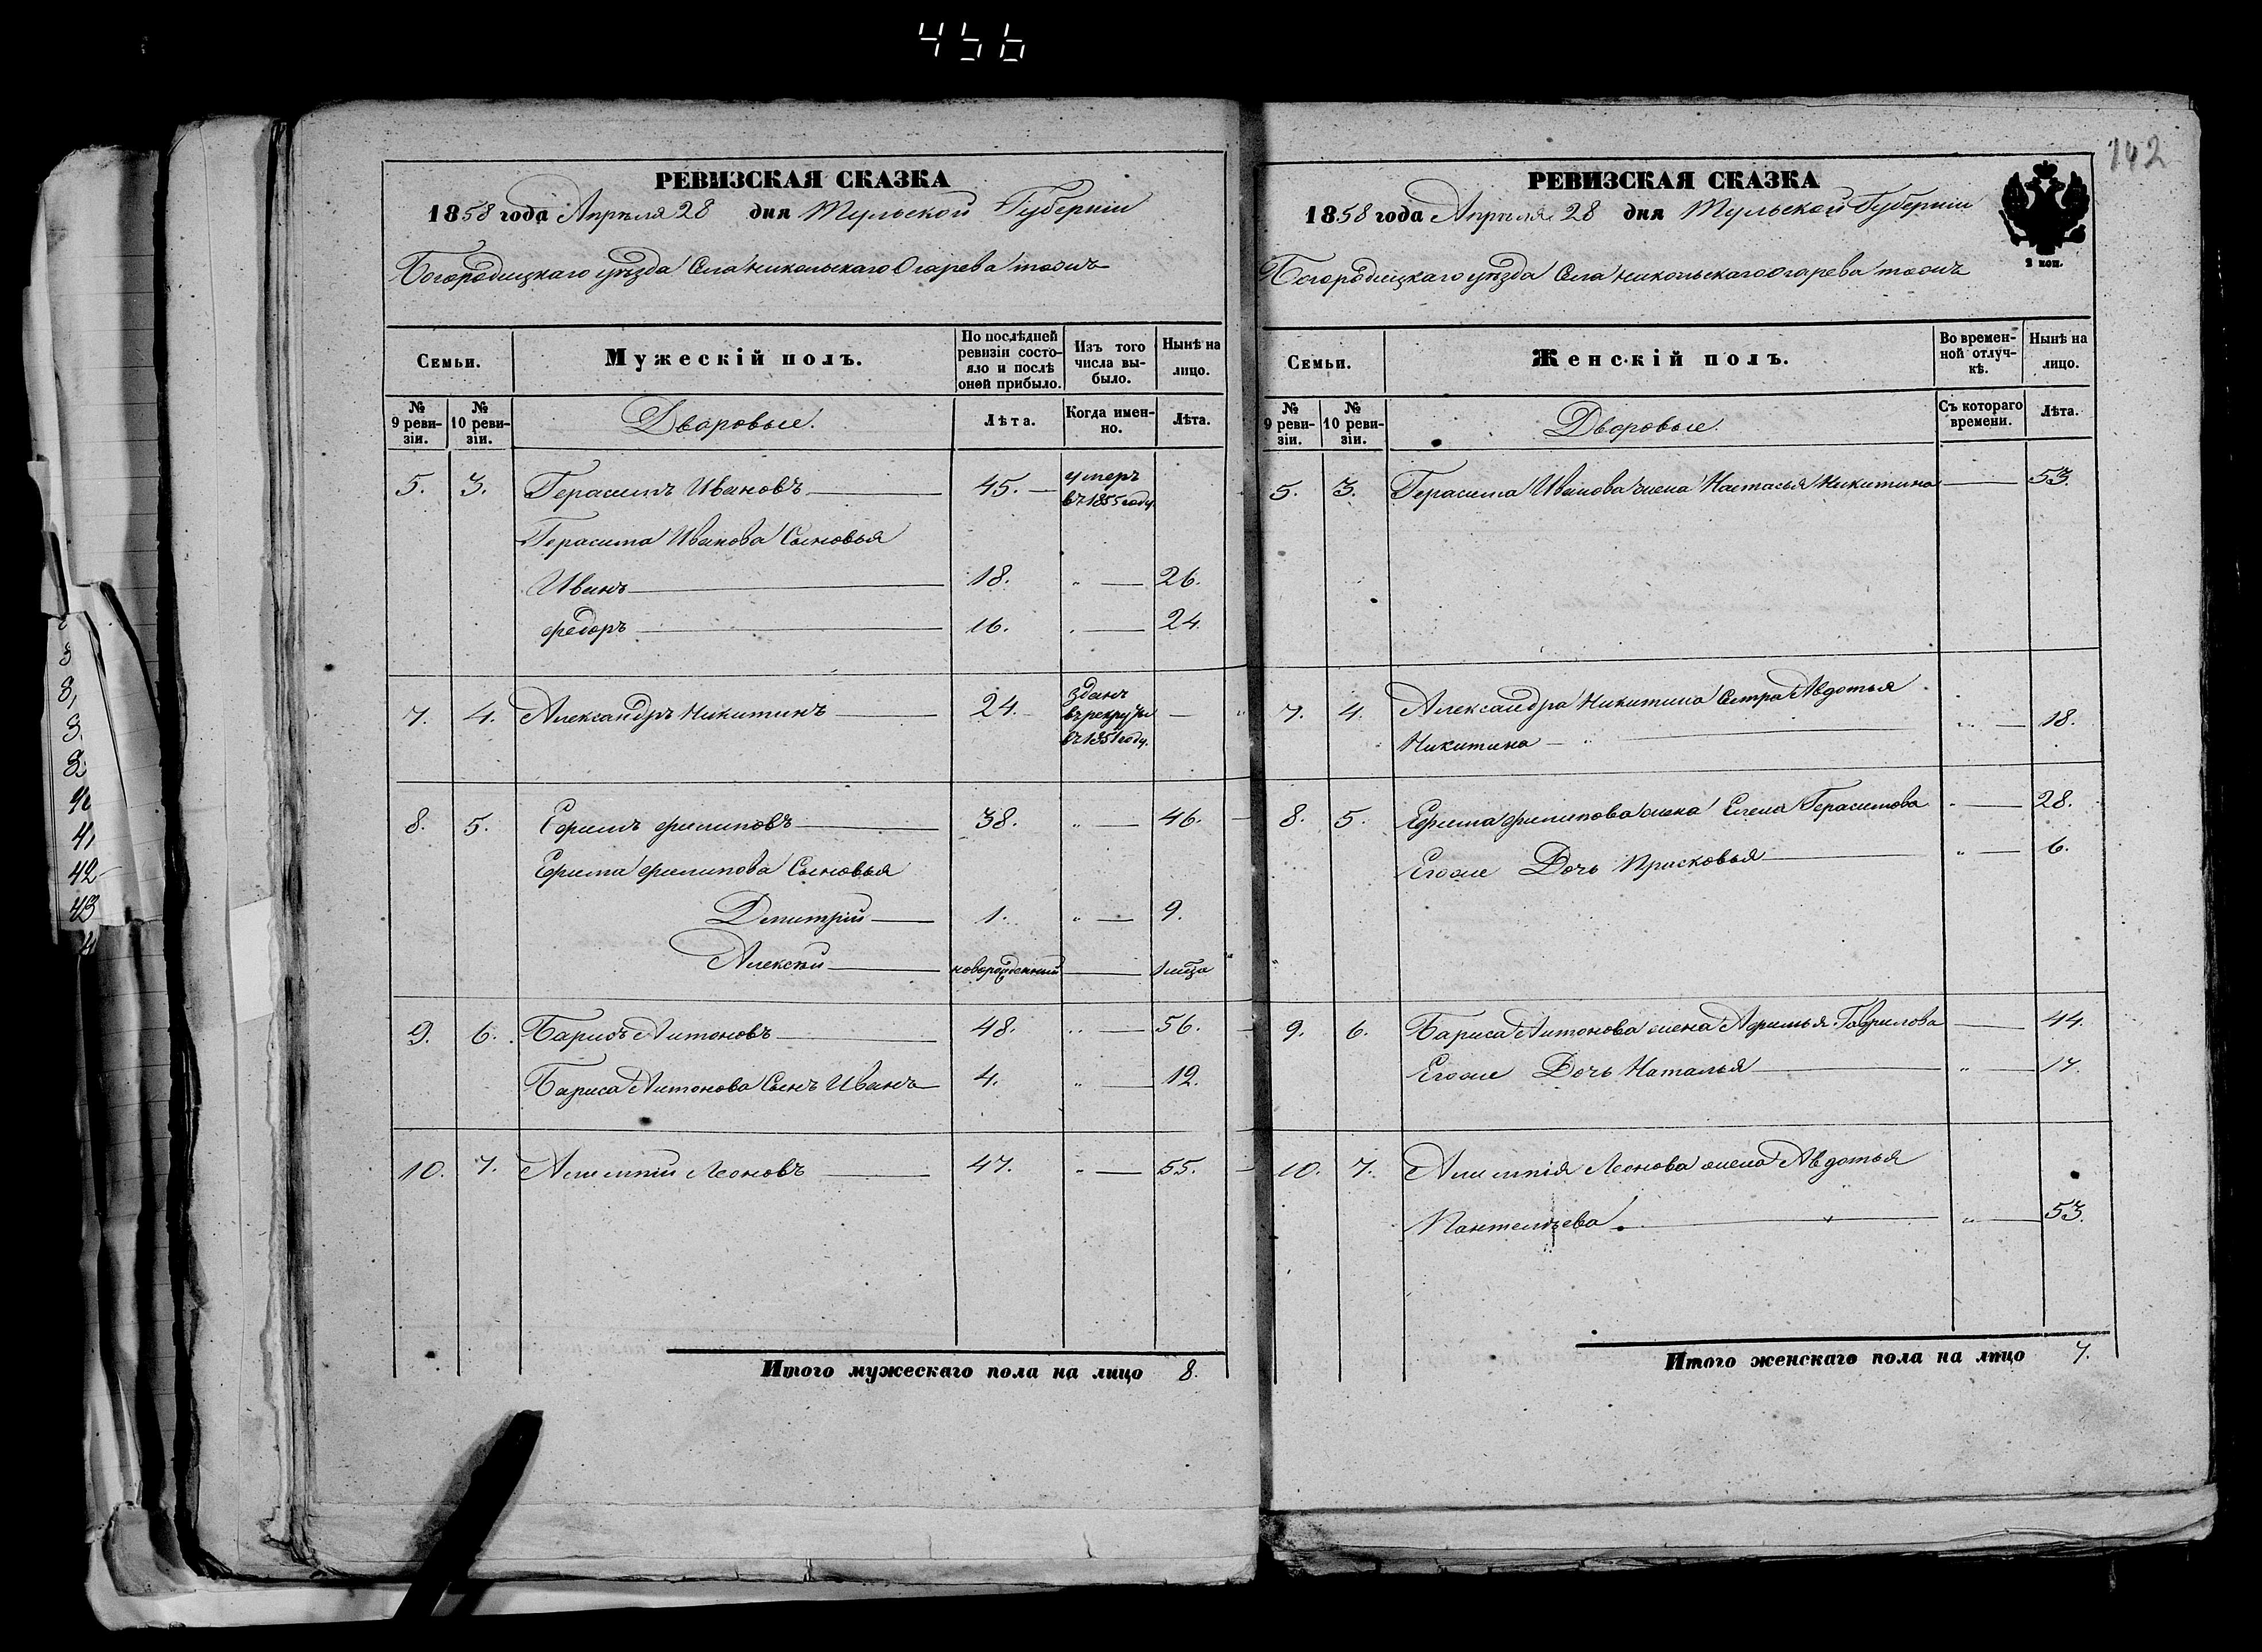 456
142
РЕВИЗСКАЯ СКАЗКА
1858 года Апрѣля 28 дня Тульской Губерніи
Богородицкаго уѣзда Села Никольскаго Огарева тожъ
Семьи. Мужескій полъ. По послѣдней ревизіи состояло и послѣ оной прибыло. Изъ того числа выбыло. Нынѣ на лицо.
№ 9 ревизіи. № 10 ревизіи. Дворовые. Лѣта. Когда именно. Лѣта.
5. 3. Герасимъ Ивановъ 45. умеръ въ 1855 году.
Герасима Иванова Сыновья
Иванъ 18. 26.
Федоръ 16. 24.
7. 4. Александръ Никитинъ 24. зданъ в рекруты в 1851 году.
8. 5. Ефимъ Филиповъ 38. 46.
Ефима Филипова Сыновья
Дмитрій 1. 9.
Алексѣй новорожденный
9. 6. Барисъ Антоновъ 48. 56.
Бариса Антонова Сынъ Иванъ 4. 12.
10. 7. Алимпій Леоновъ 47. 55.
Итого мужескаго пола на лицо 8.
РЕВИЗСКАЯ СКАЗКА
1858 года Апрѣля 28 дня Тульской Губерніи
2 коп.
Богородицкаго уѣзда Села Никольскаго Огарева тожъ
Семьи. Женскій полъ. Во временной отлучкѣ. Нынѣ на лицо.
№ 9 ревизіи. № 10 ревизіи. Дворовые. Съ котораго времени. Лѣта.
5. 3. Герасима Иванова жена Настасья Никитина 53.
7. 4. Александра Никитина Сестра Авдотья
Никитина 18.
8. 5. Ефима Филипова жена Елена Герасимова 28.
Егоже Дочь Прасковья 6.
9. 6. Бариса Антонова жена Афимья Гаврилова 44.
Егоже Дочь Наталья 17.
10. 7. Алимпія Леонова жена Авдотья
Пантелѣева 53.
Итого женскаго пола на лицо 7.